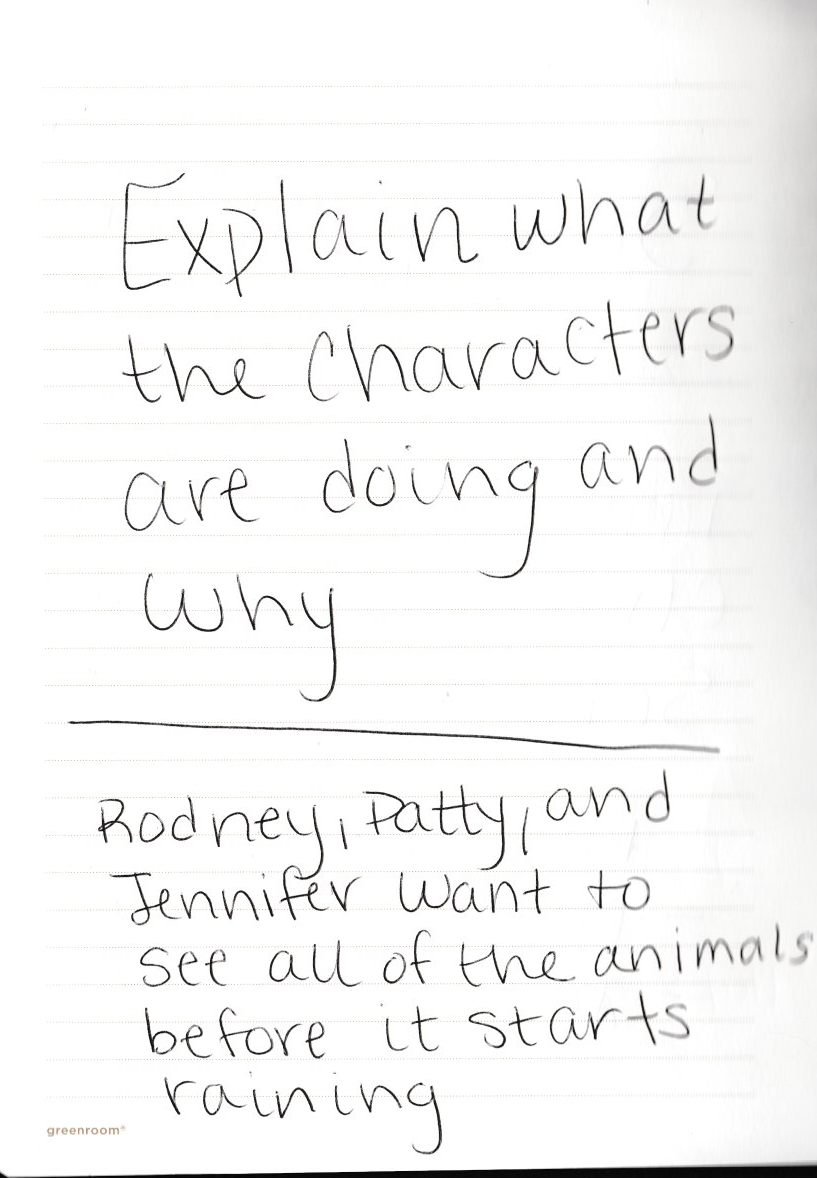 Explain what
the characters
are doing and
why
Rodney, Patty, and
Jennifer want to
see all of the animals
before it starts
raining
greenroom®